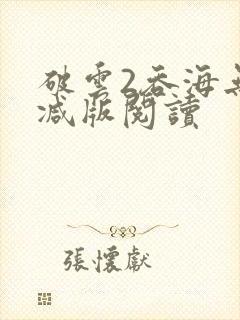 破雲2吞海無
減版閱讀
張懷獻